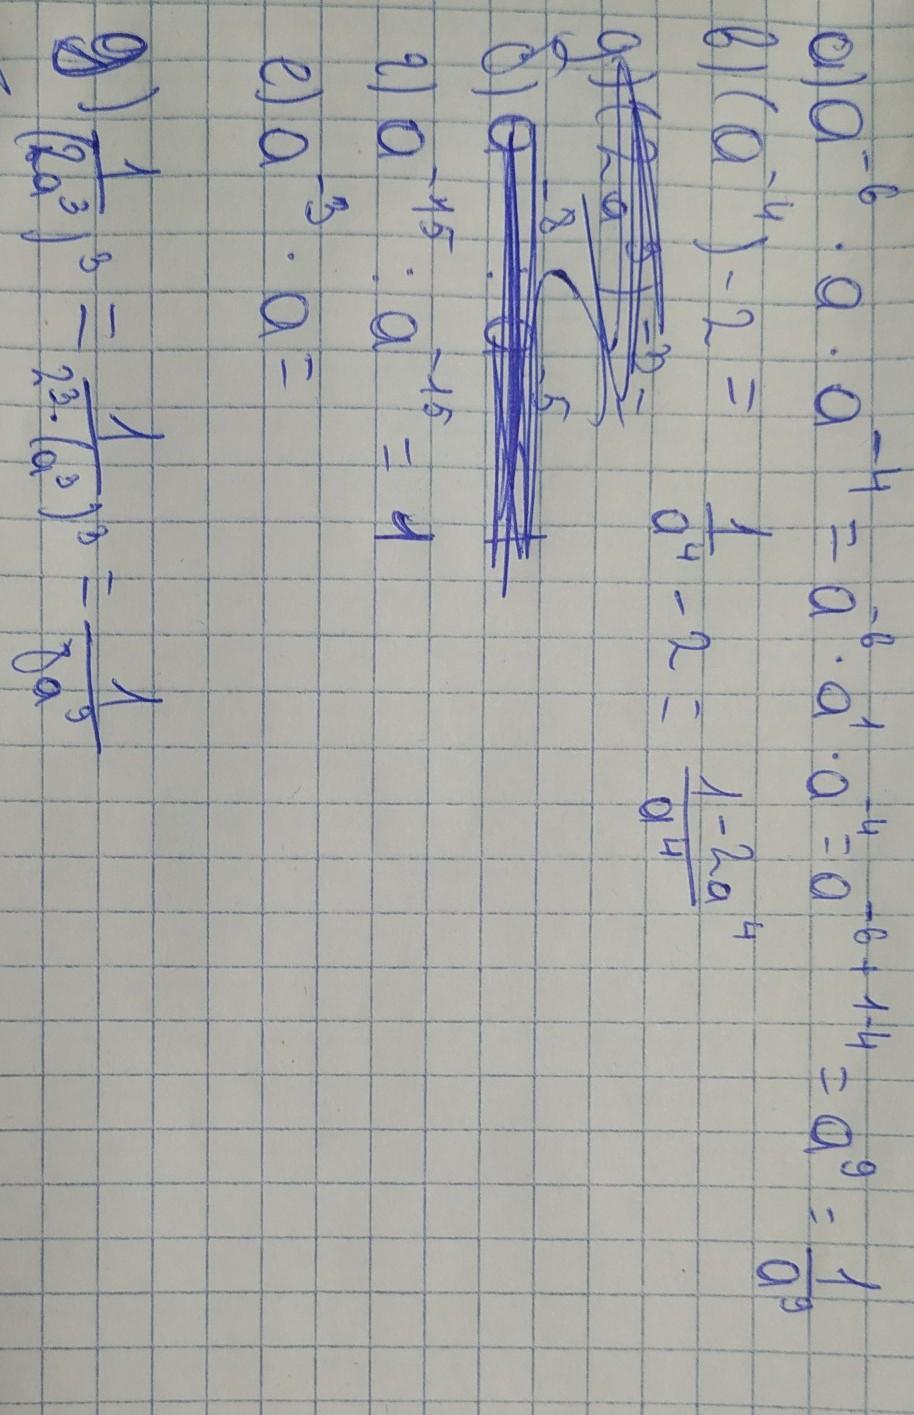 а) a⁻⁶ · a · a⁻⁴ = a⁻⁶ · a¹ · a⁻⁴ = a⁻⁶⁺¹⁻⁴ = a⁹ = 1/a⁹
в) (a⁻⁴) - 2 = 1/a⁴ - 2 = (1 - 2a⁴)/a⁴
б)
г) a⁻¹⁵ : a⁻¹⁵ = 1
е) a⁻³ · a =
д) 1/(2a³)³ = 1/(2³ · (a³)³) = 1/(8a⁹)